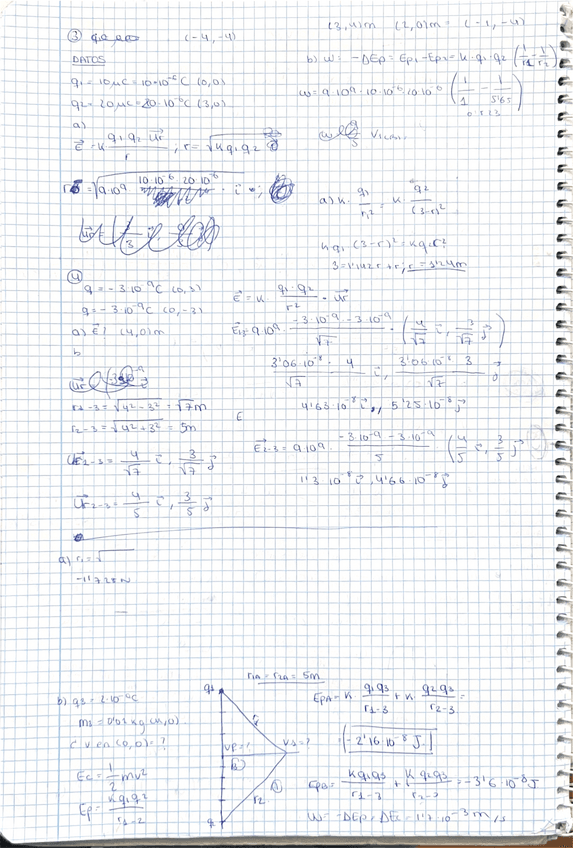 (3,4)m (2,0)m = (-1,-4)
③ (-4,-4)
DATOS
q₁ = 10μC = 10·10⁻⁶ C (0,0)
q₂ = 20μC = 20·10⁻⁶ C (3,0)
a)
E⃗ = K q₁ q₂ u⃗r / r ; r = √K q₁ q₂
= √9·10⁹ 10·10⁻⁶ 20·10⁻⁶
b) W = -ΔEp = Ep₁ - Ep₂ = K·q₁·q₂ (1/r₁ - 1/r₂)
W = 9·10⁹·10·10⁻⁶·20·10⁻⁶ (1/1 - 1/5'65)
a) K· q₁/r² = K· q₂/(3-r)²
K q₁ (3-r)² = K q₂ r²
3 = 1'142 r + r ; r = 1'24m
④
q = -3·10⁻⁹ C (0,3)
q = -3·10⁻⁹ C (0,-3)
a) E⃗? (4,0)m
b
r₁-3 = √4²-3² = √7m
r₂-3 = √4²+3² = 5m
u⃗r₁-3 = 4/√7 i⃗, 3/√7 j⃗
u⃗r₂-3 = 4/5 i⃗, 3/5 j⃗
E⃗ = K· q₁·q₂/r² · u⃗r
E⃗₁₃ = 9·10⁹· -3·10⁻⁹ -3·10⁻⁹/√7 · (4/√7 i⃗, 3/√7 j⃗)
3'06·10⁻⁸ · 4/√7 i⃗, 3'06·10⁻⁸ 3/√7 j⃗
E 4'63·10⁻⁸ i⃗, 5'25·10⁻⁸ j⃗
E⃗₂-3 = 9·10⁹· -3·10⁻⁹ -3·10⁻⁹/5 (4/5 i⃗, 3/5 j⃗)
1'3·10⁻⁸ i⃗, 4'66·10⁻⁸ j⃗
a) r₁ = √
-1'728 N
b) q₃ = 2·10⁻⁶ C
(4,0)
v en (0,0) = ?
Ec = 1/2 mv²
Ep = K q₁ q₂/r₁-2
r₁A = r₂A = 5m
q₁
VB = ?
VA = ?
r₂
EpA = K q₁q₃/r₁-3 + K q₂q₃/r₂-3 =
-2'16·10⁻⁸ J.
EpB = K q₁q₃/r₁-3 + K q₂q₃/r₂-3 = -3'6·10⁻⁸ J
W = -ΔEp = ΔEc = 1'7·10⁻³ m/s